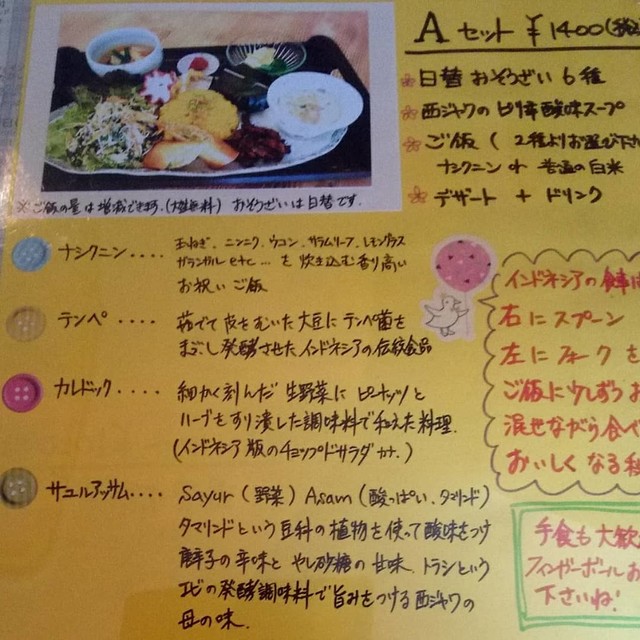 A セット ¥1400(税込
日替 おそうざい 6種
西ジャワの ピリ辛 酸味スープ
ご飯 ( 2種よりお選び下さい
ナシクニン or 普通の白米
デザート + ドリンク
※ご飯の量は増減できます。(大盛無料) おそうざいは日替です。
ナシクニン....
玉ねぎ、ニンニク、ウコン、サラムリーフ、レモングラス
ガランガル etc... を 炊き込む香り高い
お祝い ご飯
テンペ ....
茹でて 皮をむいた大豆に テンペ菌を
まぶし発酵させた、インドネシアの伝統食品
カルドック....
細かく刻んだ 生野菜に ピーナッツと
ハーブをすり潰した調味料で和えた料理.
(インドネシア版のチョップドサラダかナ.)
サユルアッサム....
Sayur (野菜) Asam (酸っぱい、タマリンド)
タマリンドという豆科の植物を使って酸味をつけ
唐辛子の辛味と やし砂糖の甘味、トラシという
エビの発酵調味料で旨みをつける西ジャワの
母の味.
インドネシアの食事は
右にスプーン
左にフォークを
ご飯に少しずつお
混ぜながら食べ
おいしくなる秘
手食も大歓
フィンガーボールお
下さいね!